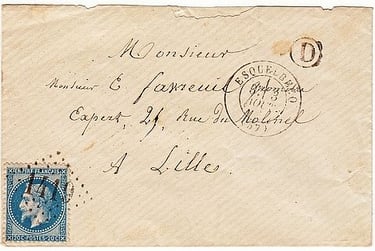 D
Monsieur
Monsieur E. favreuil
Expert, 21, Rue du Molinel
A Lille
ESQUELBECQ
AOUT
(57)
EMPIRE FRANÇAIS
20C POSTES 20C